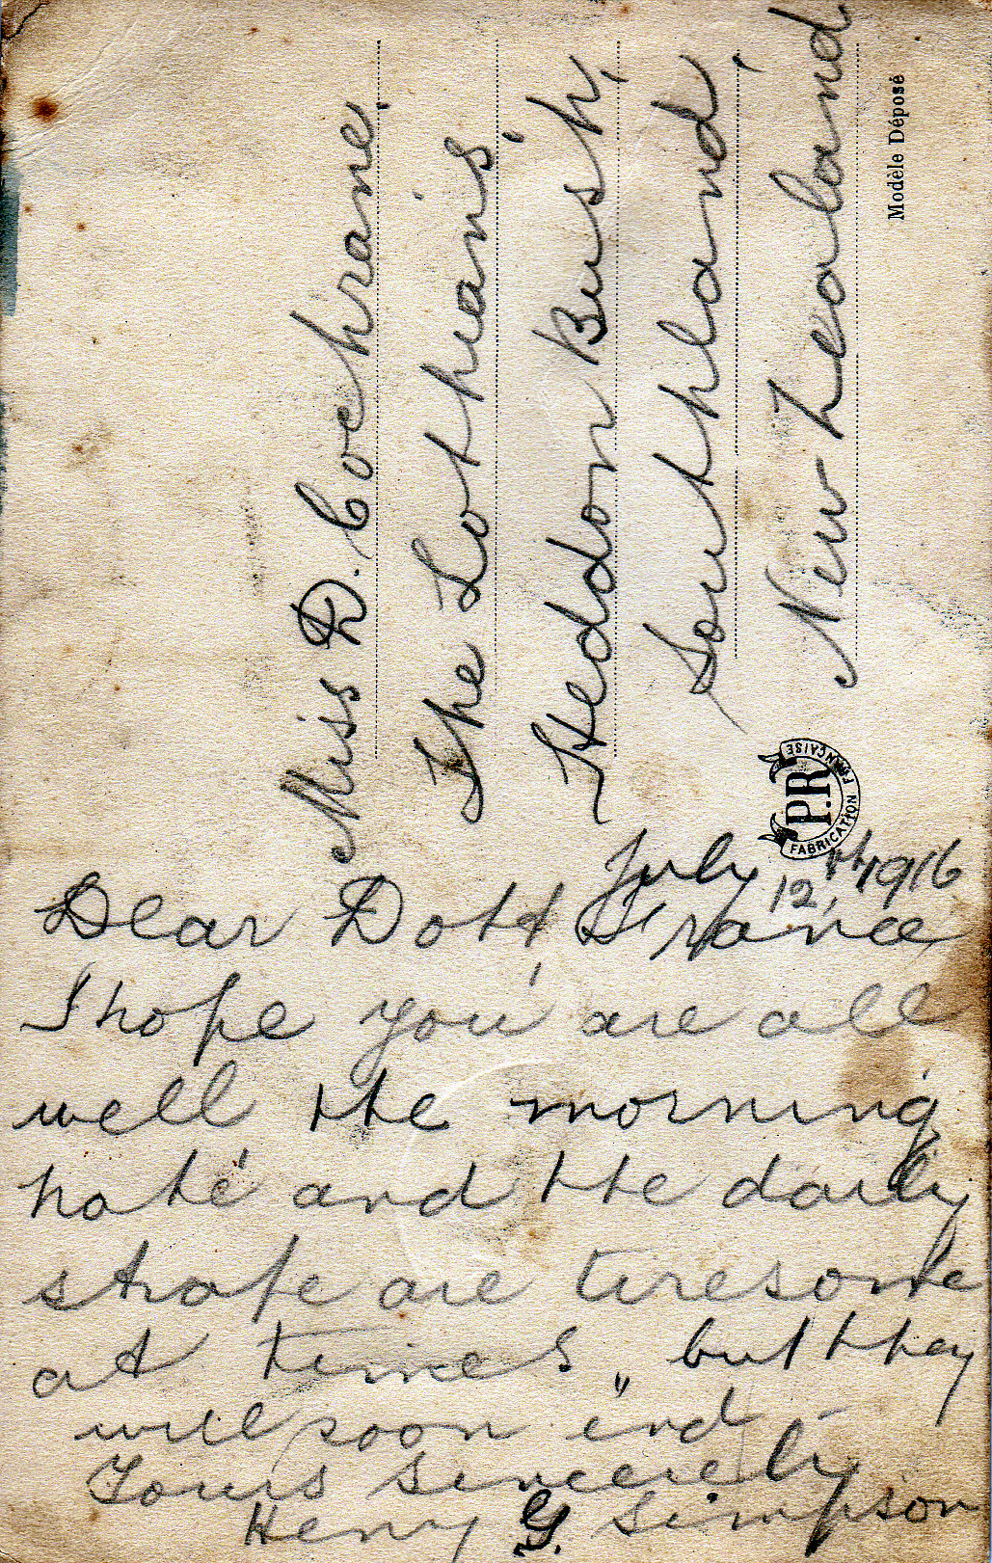 Miss D. Cochrane,
The Lothians,
Heddon Bush,
Southland,
New Zealand.
Modèle Déposé
P.R
FABRICATION FRANÇAISE
July 12th, 1916
Dear Dott, France
I hope you are all
well the morning
hate and the daily
strafe are tiresome
at times, but they
will soon end
Yours Sincerely
Henry G. Simpson